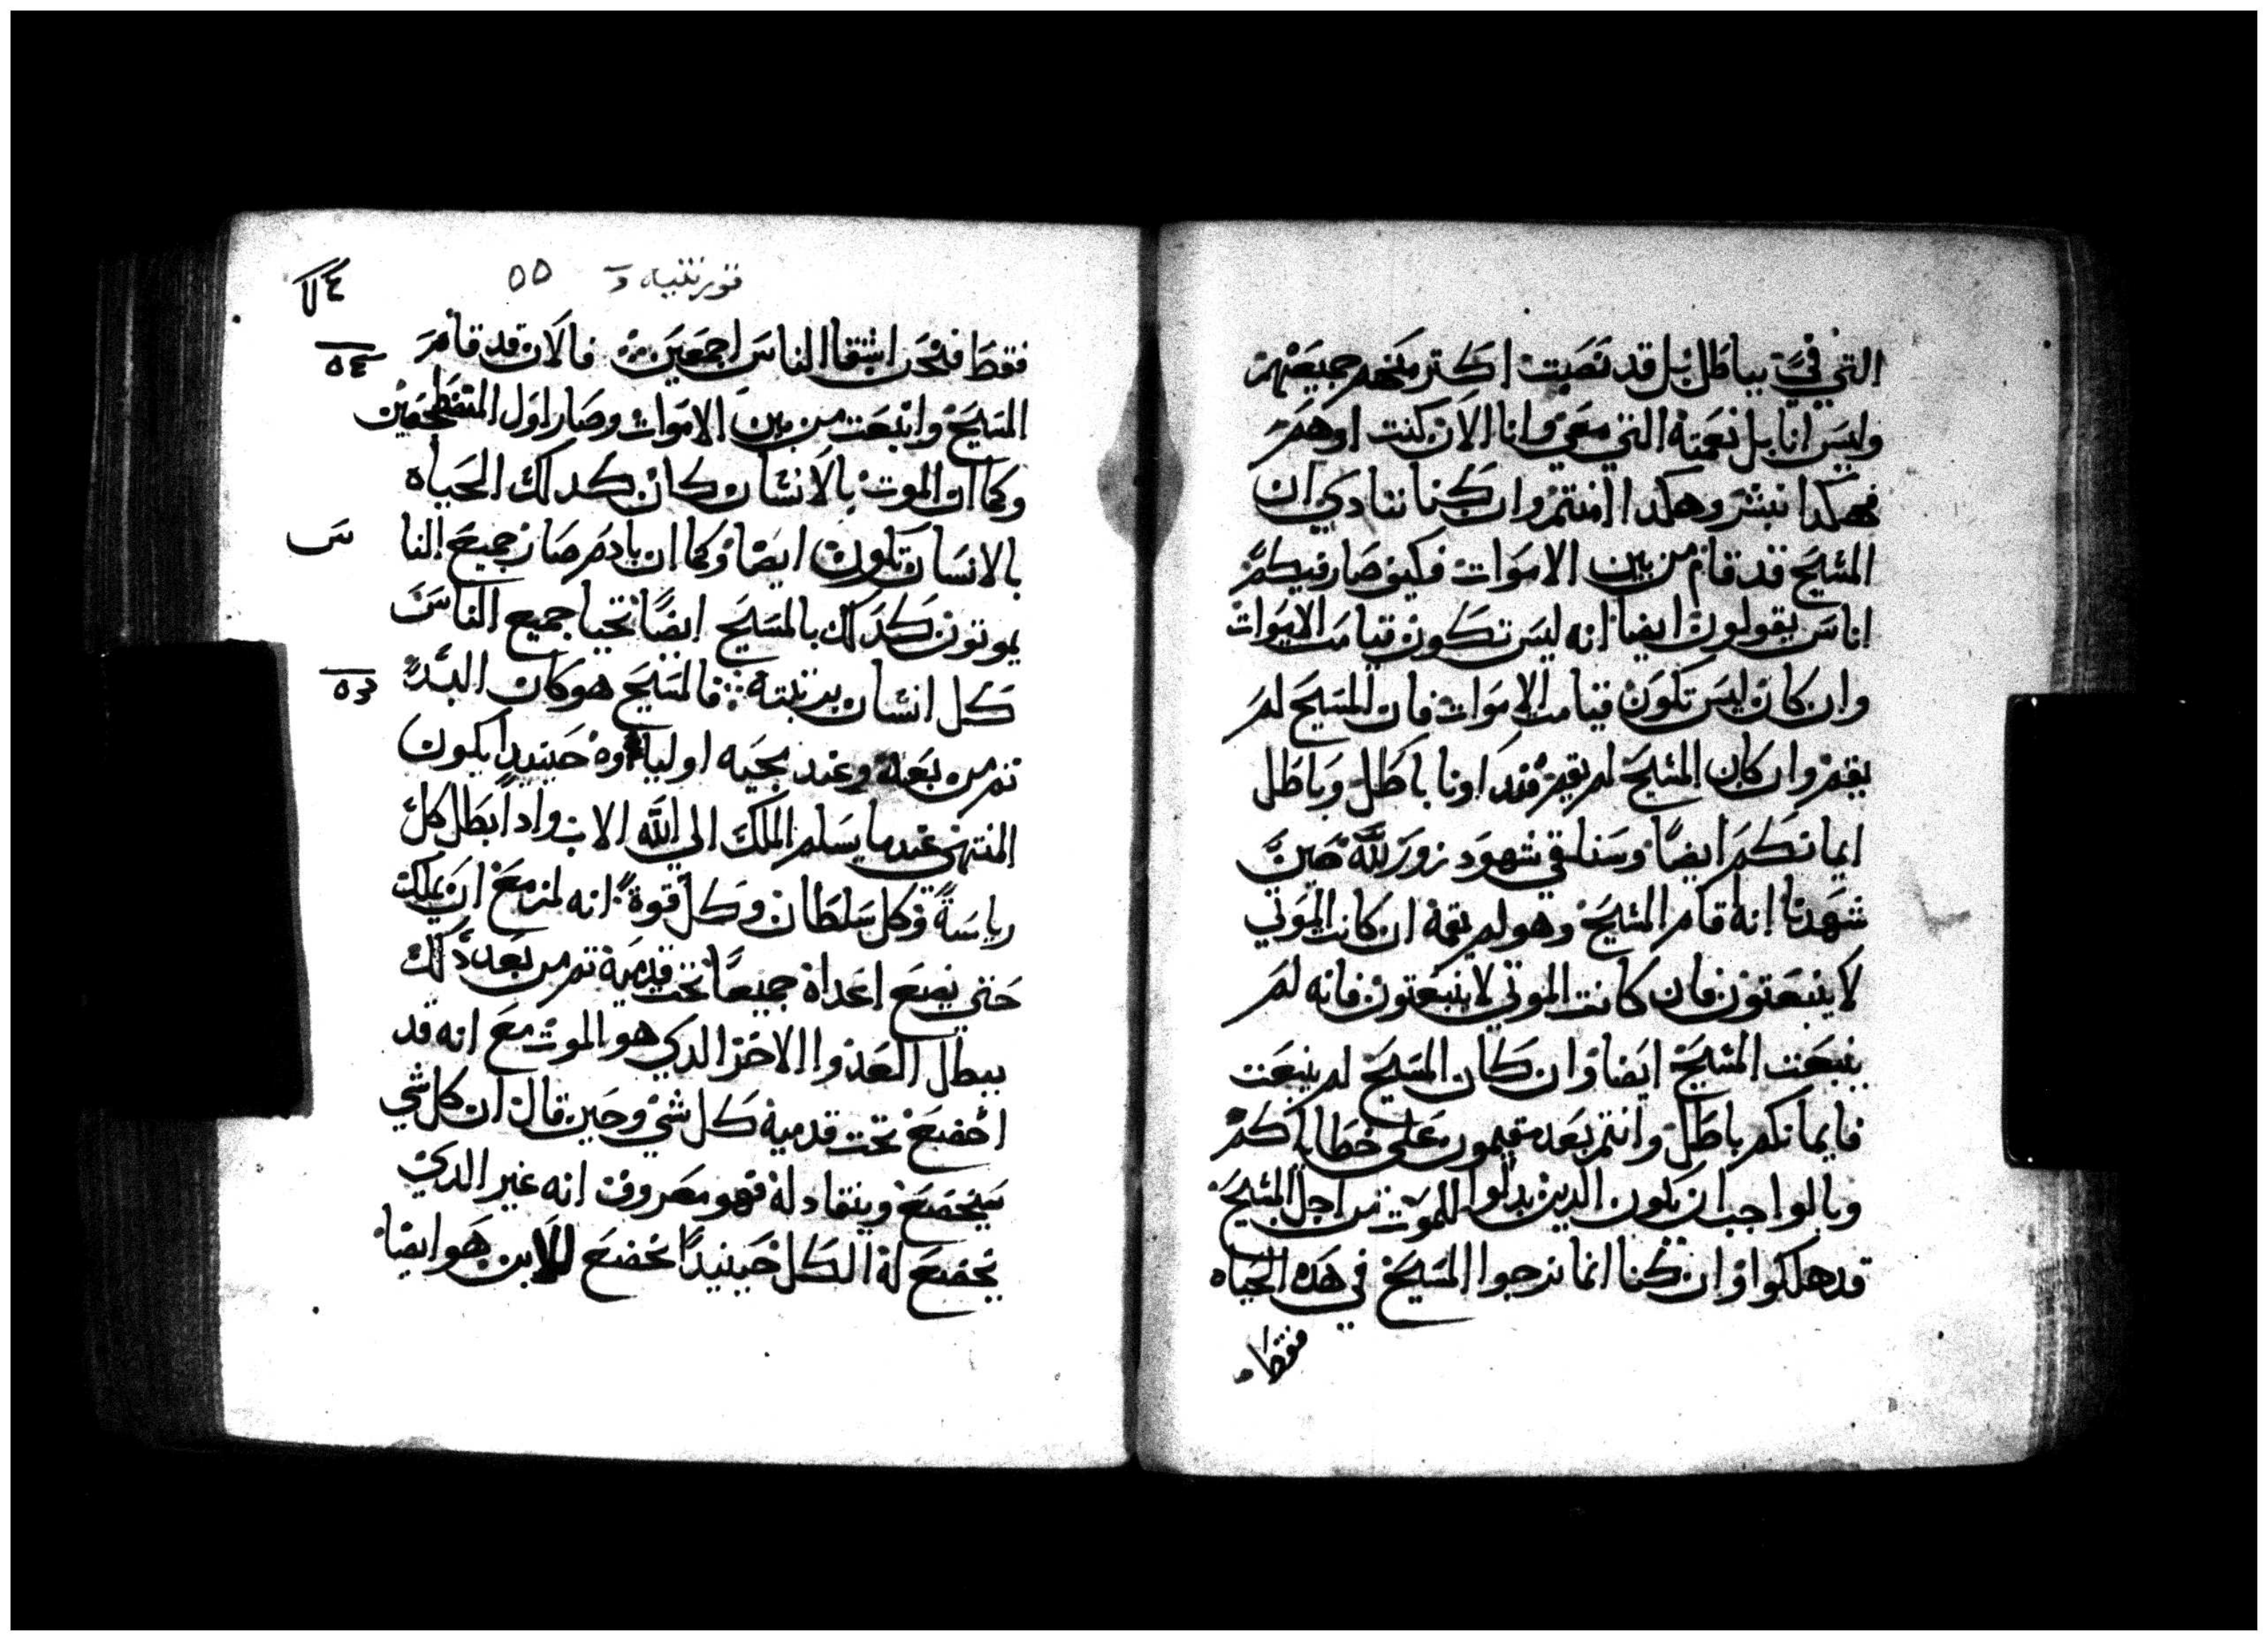 التي فيَّ بباطل بل قد نصبت اكتر منهم جميعهم
وليس انا بل نعمته التي معي وانا الان كنت اوهم
فهكدا نبشر وهكدا امنتم وان كنا ننادي ان
المسيح قد قام من بين الاموات فكيف صار فيكم
اناس يقولون ايضا انه ليس تكون قيامت الاموات
وان كان ليس تكون قيامت الاموات فان المسيح لم
يقم وان كان المسيح لم يقم فنداونا باطل وباطل
ايمانكم ايضاً وسنلقي شهود زور لله حين
شهدنا انه اقام المسيح وهو لم يقمه ان كانت الموتي
لا ينبعتون فان كانت الموتي لا ينبعتون فانه لم
ينبعت المسيح ايضا وان كان المسيح لم ينبعت
فايمانكم باطل وانتم بعد مقيمون علي خطاياكم
وبالواجب ان يكون الدين بدلوا للموت من اجل المسيح
قد هلكوا وان كنا انما نرجوا المسيح في هده الحياه
فقط
قورنتيه
٥٥
فقط فنحن اشقا الناس اجمعين فالان قد قام
٥٤
المسيح وانبعت من بين الاموات وصار اول المضطجعين
وكما ان الموت بالانسان كان كدلك الحياه
بالانسان تكون ايضا وكما ان بادم صار جميع النا
س
يموتون كدلك بالمسيح ايضاً تحيا جميع الناس
كل انسان برتبته فالمسيح هو كان البدء
٥٥
تم من بعده وعند مجيه اولياوه حينيد يكون
المنتهي عندما يسلم الملك الي الله الاب وادا ابطل كل
رياسةً وكل سلطان وكل قوة انه لمزمع ان يملك
حتي يضع اعداه جميعاً تحت قدميه تم من بعد دلك
يبطل العدوا الاخر الدي هو الموت مع انه قد
اخضع تحت قدميه كل شي وحين قال ان كل شي
سيخضع وينقاد له فهو معروف انه غير الدي
يخضع له الكل حينيداً يخضع للابن هو ايضا